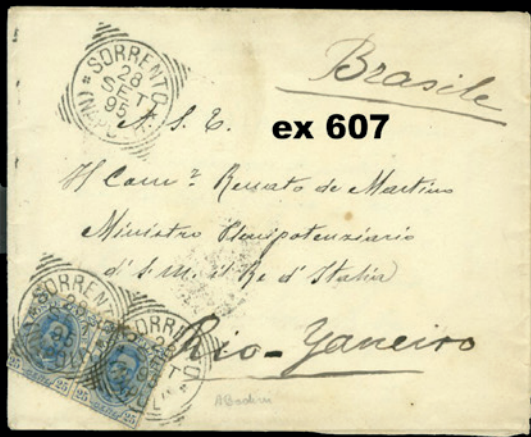 SORRENTO
28
SET
95
(NAPOLI)
Brasile
A. S. E.
ex 607
Il Comm.r Renato de Martino
Ministro Plenipotenziario
di S. M. il Re d'Italia
Rio-Janeiro
SORRENTO
28
SET
95
(NAPOLI)
SORRENTO
28
SET
95
(NAPOLI)
25 25
25 25